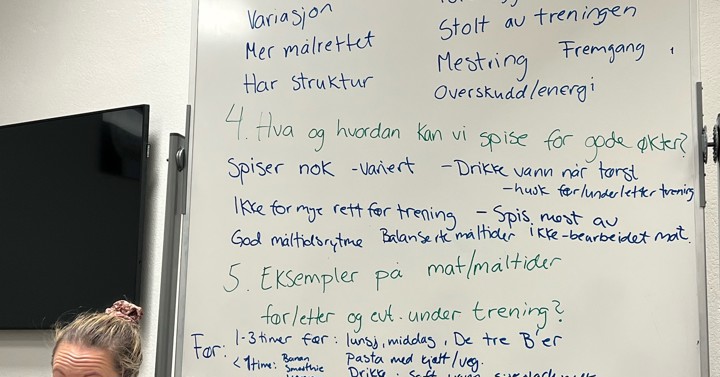 Variasjon
Stolt av treningen
Mer målrettet
Mestring Fremgang
Har struktur
Overskudd/energi
4. Hva og hvordan kan vi spise for gode økter?
Spiser nok - variert - Drikke vann når tørst
- husk før/under/etter trening
Ikke for mye rett før trening - Spis mest av
God måltidsrytme Balanserte måltider ikke-bearbeidet mat.
5. Eksempler på mat/måltider
før/etter og evt. under trening?
Før: 1-3 timer før: lunsj, middag, De tre B'er
<1time: Banan Pasta med kjøtt/veg.
Smoothie Drikke: Saft, vann,